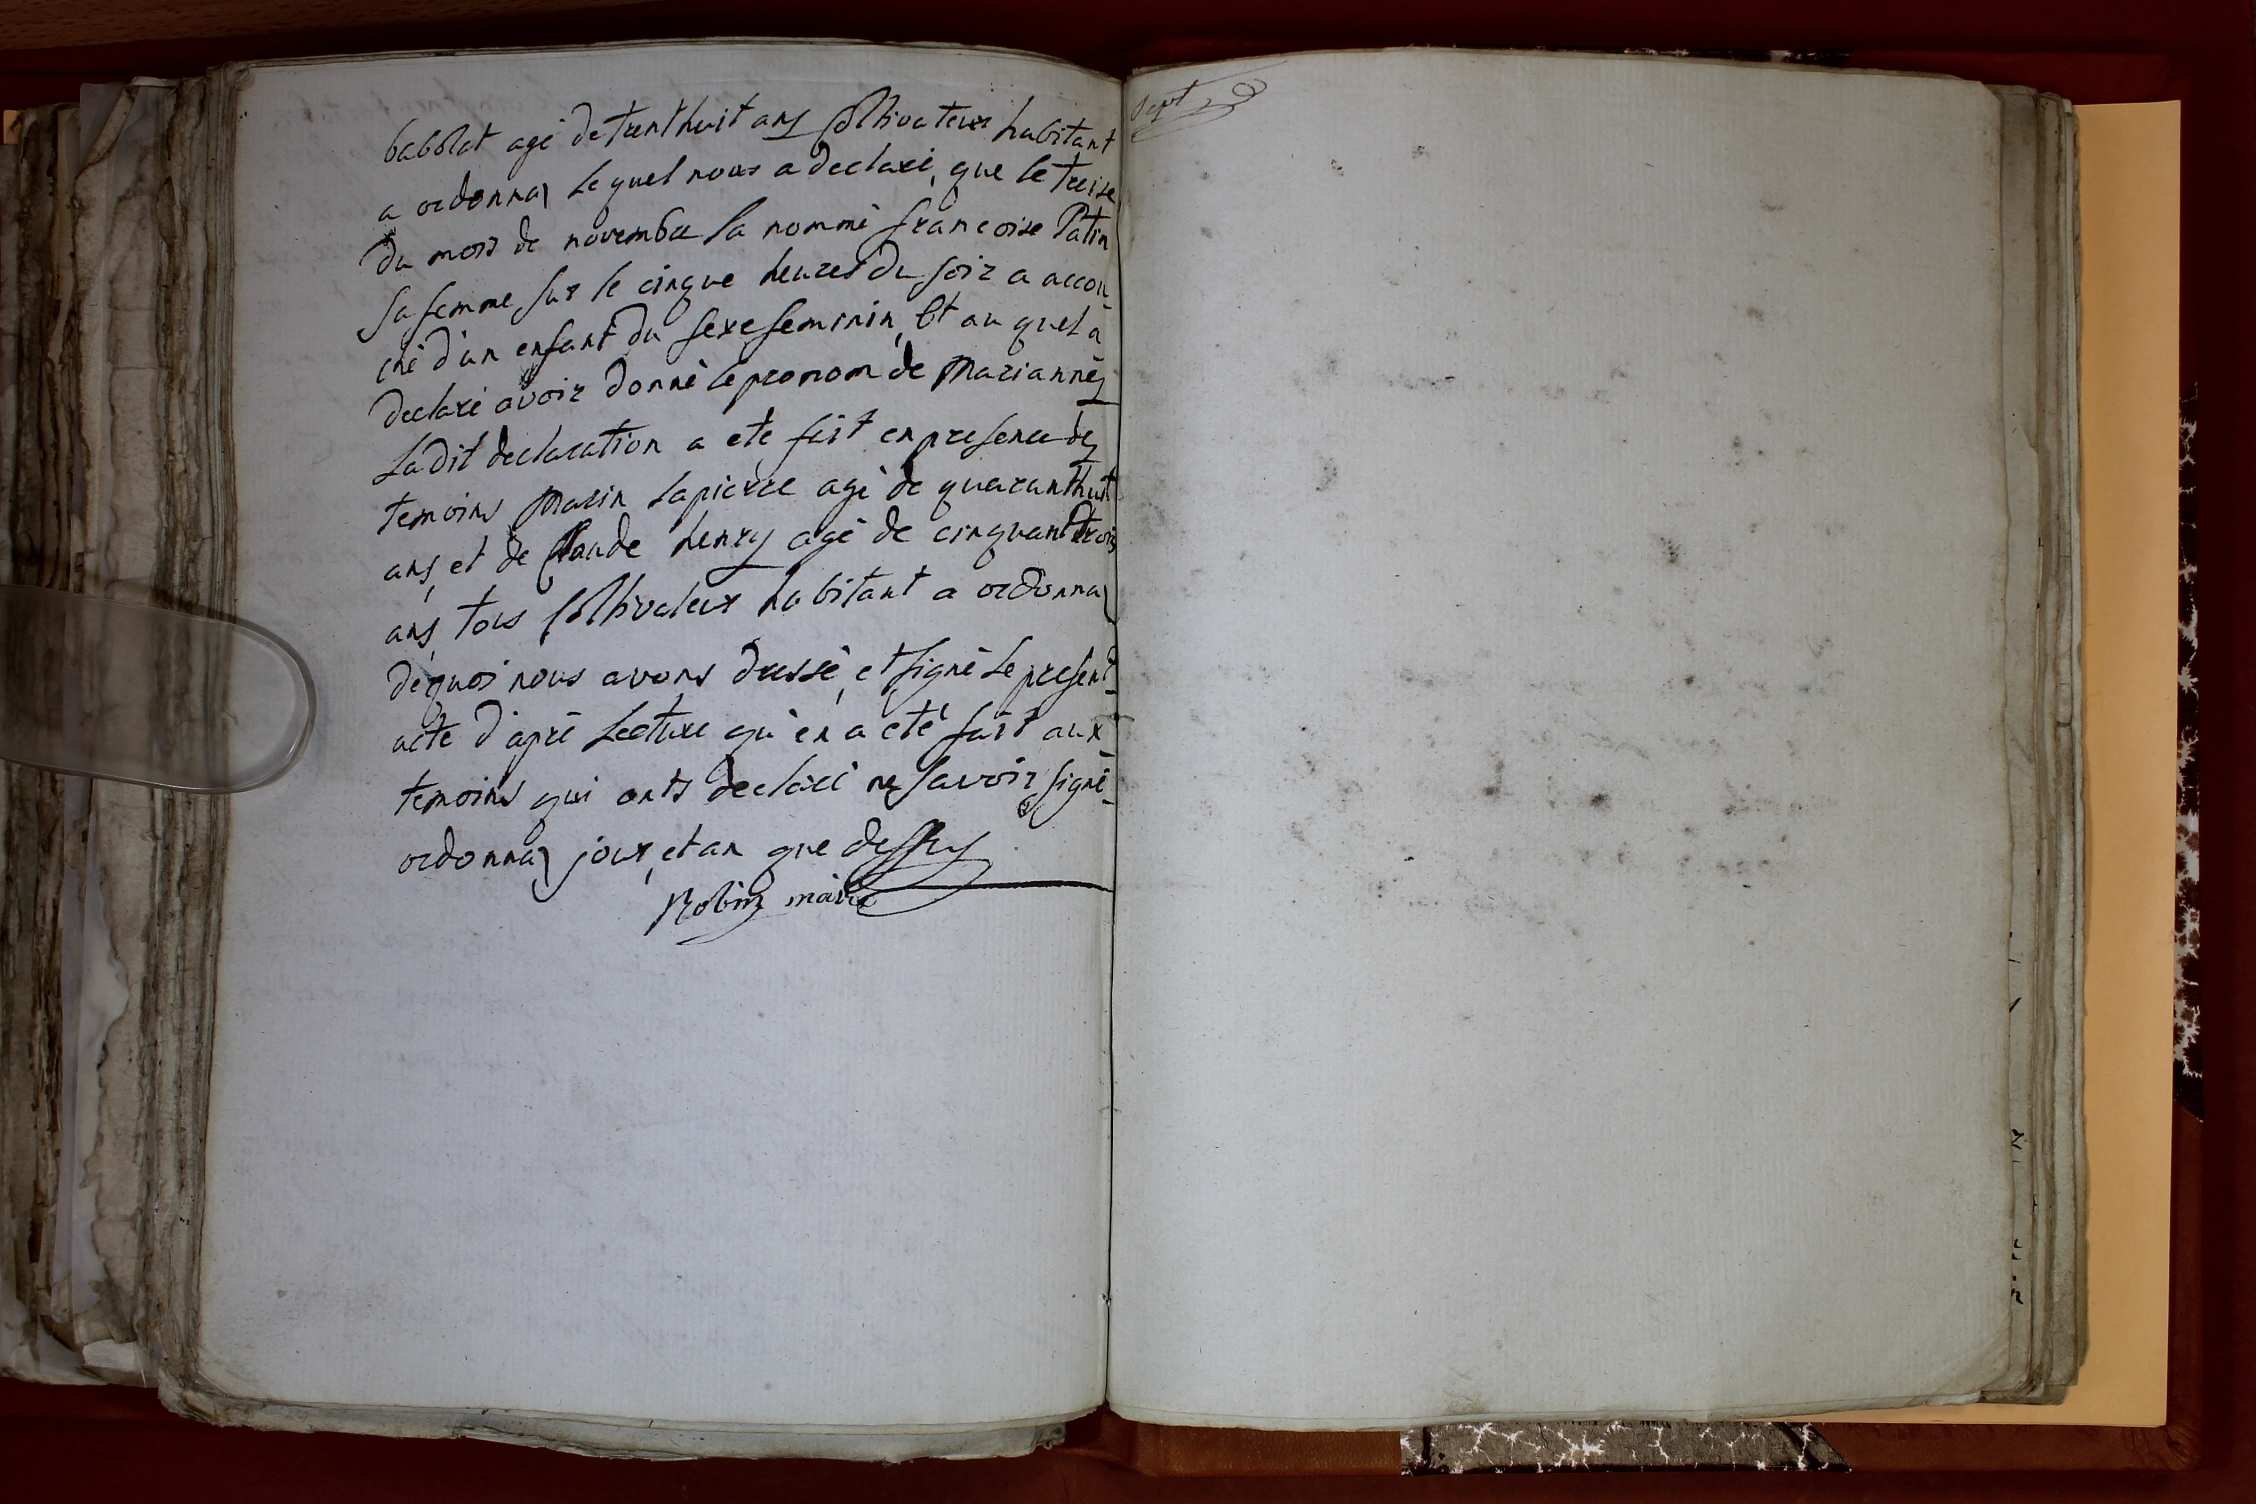 babolat agé de trenthuit ans Coltivateur habitant
a ordonnas le quel nous a declaré, que le treise
du mois de novembre la nommè francoise Patin
sa femme sur le cinque heures du soir a accou-
ché d'un enfant du sexe feminin, Et au quel a
declaré avoir donnè le pronom de Mariannes
La dit declaration a ete fait en presence des
temoins Marin Lapierre agè de quaranthuit
ans, et de Claude henry agè de cinquanttrois
ans, tous Coltivateur habitant a ordonnas
dequoi nous avons dressè, et signè le present-
acte d'aprè Lecture qu'en a eté fait aux-
temoins qui onts declaré ne savoir signè-
ordonnas jour, et an que dessus
Robin maire
Sept